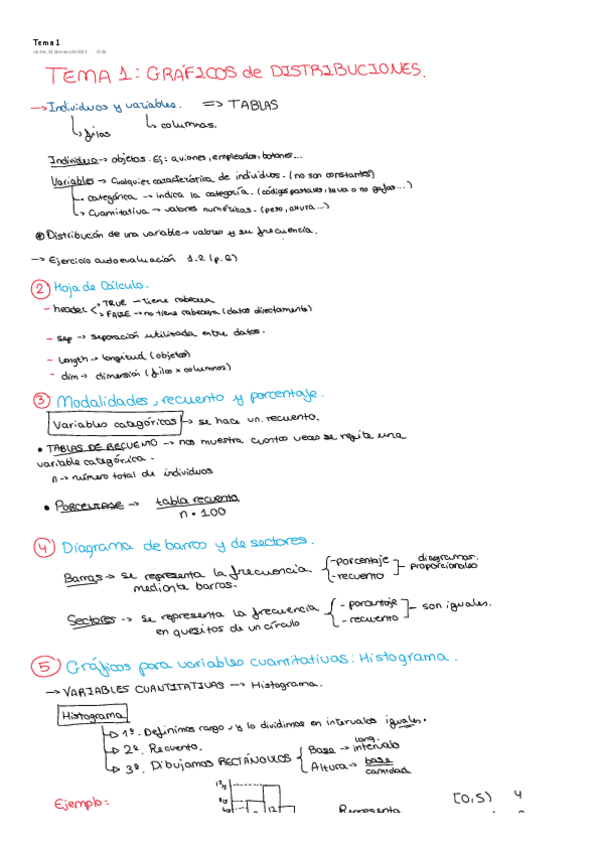 Tema 1
TEMA 1: GRÁFICOS de DISTRIBUCIONES.
→ Individuos y variables. => TABLAS
filas
columnas.
Individuo → objetos. Ej: aviones, empleador, botones...
Variables → Cualquier característica de individuos. (no son constantes)
• categórica → indica la categoría. (códigos postales, lleva o no gafas...)
Cuantitativa → valores numéricos. (peso, altura...)
Distribución de una variable → valores y su frecuencia.
→ Ejercicio autoevaluación 1.2 (p.6)
2 Hoja de Cálculo.
- header TRUE → tiene cabecera
FALSE → no tiene cabecera (datos directamente)
- sep → separación utilizada entre datos.
- Length → longitud (objetos)
- dim → dimensión (filas x columnas)
3 Modalidades, recuento y porcentaje.
Variables categóricas → se hace un recuento.
• TABLAS DE RECUENTO → nos muestra cuantas veces se repite una
variable categórica.
n → número total de individuos
• PORCENTAJE → tabla recuento
n • 100
4 Diagrama de barras y de sectores.
Barras → se representa la frecuencia mediante barras. - porcentaje - recuento diagramas proporcionales
Sectores → se representa la frecuencia en quesitos de un círculo - porcentaje - recuento son iguales.
5 Gráficos para variables cuantitativas: Histograma.
→ VARIABLES CUANTITATIVAS → Histograma.
Histograma
1º. Definimos rango, y lo dividimos en intervalos iguales.
2º. Recuento.
3º. Dibujamos RECTÁNGULOS Base → long. intervalo
Altura → base
cantidad
Ejemplo: 12 Representa [0,5) 4